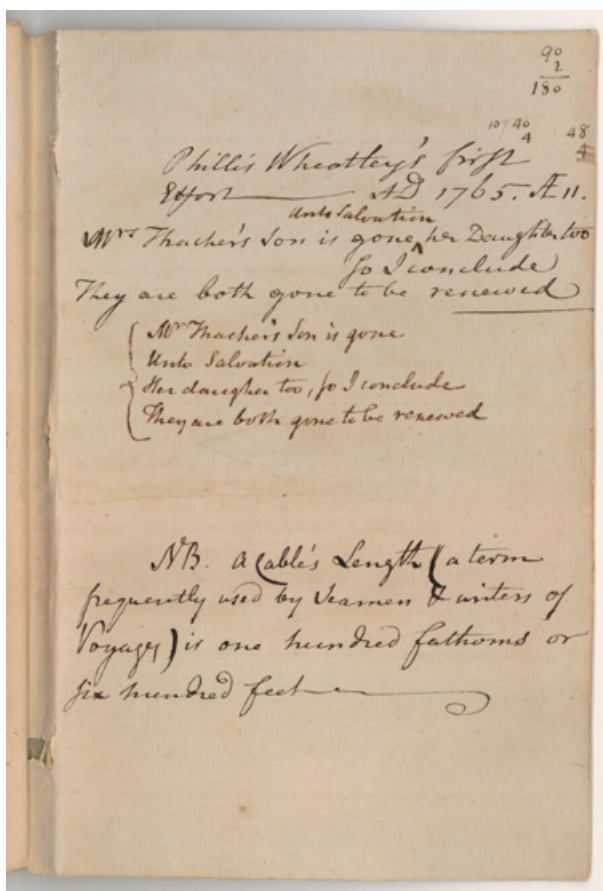 90
2
180
10/40 48
4 4
Phillis Wheatley's first
Effort —— AD 1765. Æ 11.
Unto Salvation
Mrs Thacher's Son is gone ^ her Daughter too
so I conclude
They are both gone to be renewed
Mrs Thacher's Son is gone
Unto Salvation
Her daugher too, so I conclude
They are both gone to be renewed
NB. a Cable's Length (a term
frequently used by Seamen & writers of
Voyages) is one hundred fathoms or
six hundred feet